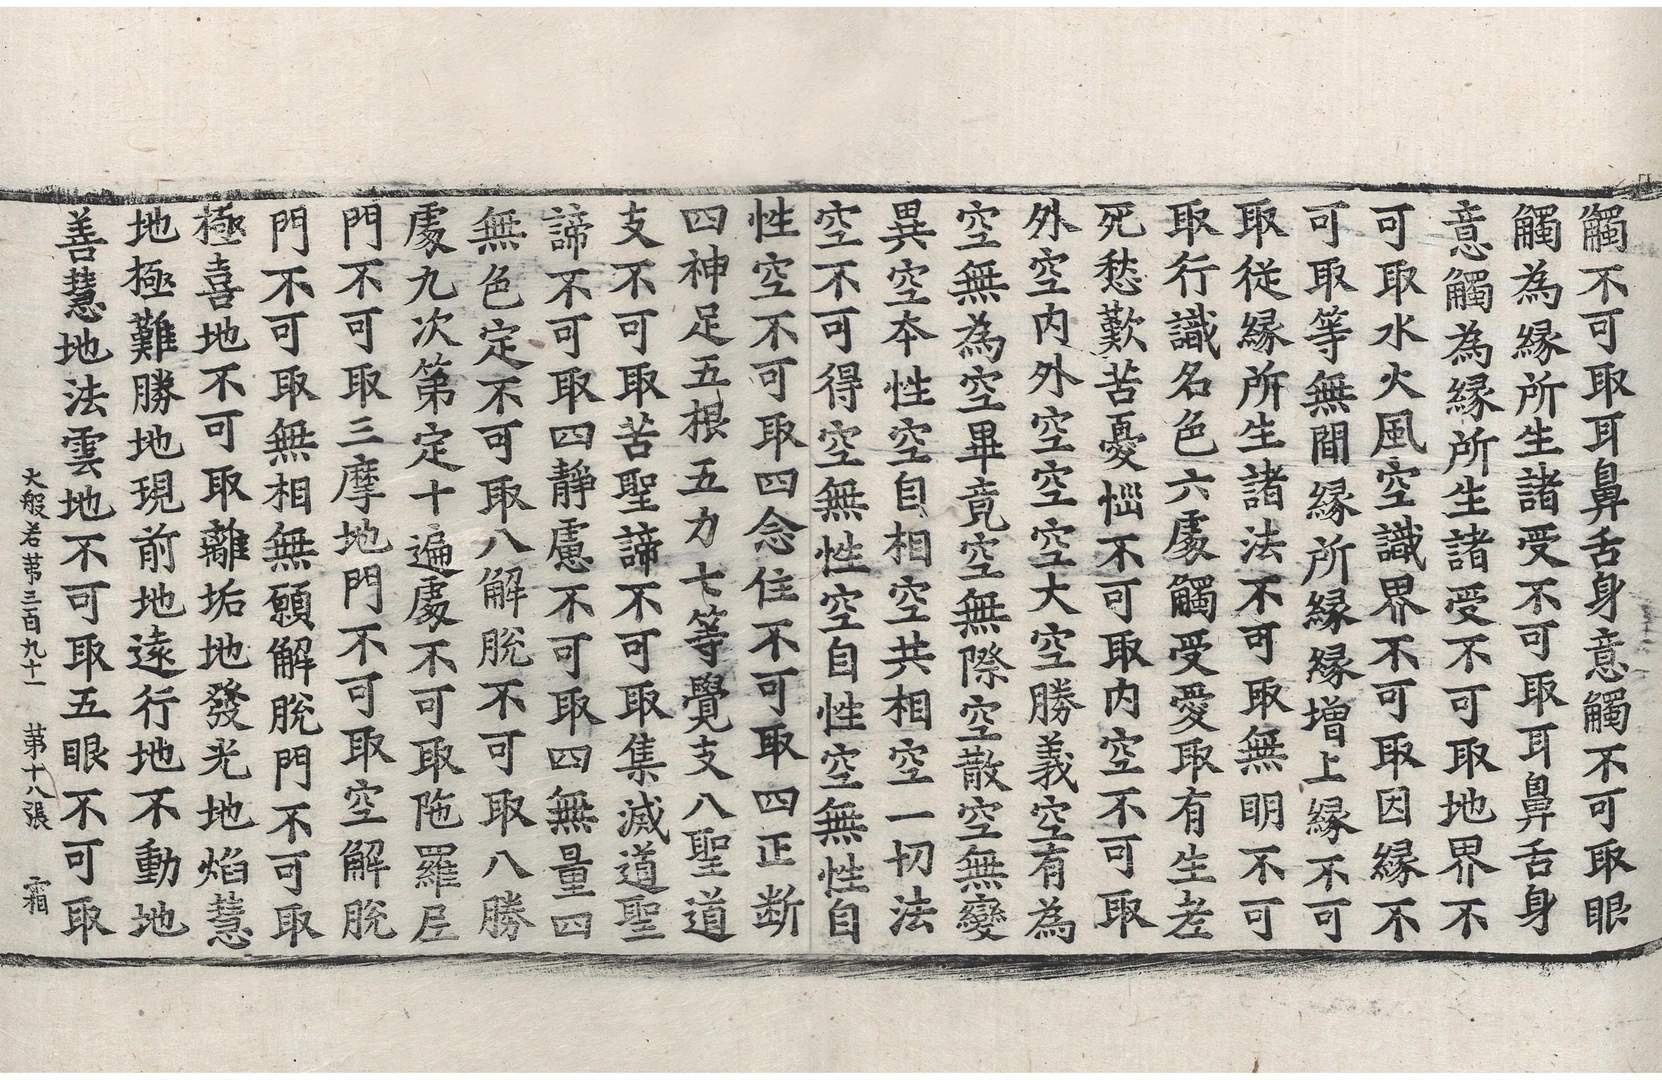 觸不可取耳鼻舌身意觸不可取眼
觸為緣所生諸受不可取耳鼻舌身
意觸為緣所生諸受不可取地界不
可取水火風空識界不可取因緣不
可取等無間緣所緣緣增上緣不可
取從緣所生諸法不可取無明不可
取行識名色六處觸受愛取有生老
死愁歎苦憂惱不可取内空不可取
外空内外空空空大空勝義空有為
空無為空畢竟空無際空散空無變
異空本性空自相空共相空一切法
空不可得空無性空自性空無性自
性空不可取四念住不可取四正斷
四神足五根五力七等覺支八聖道
支不可取苦聖諦不可取集滅道聖
諦不可取四靜慮不可取四無量四
無色定不可取八解脫不可取八勝
處九次第定十遍處不可取陁羅尼
門不可取三摩地門不可取空解脫
門不可取無相無願解脫門不可取
極喜地不可取離垢地發光地焰慧
地極難勝地現前地遠行地不動地
善慧地法雲地不可取五眼不可取
大般若苐三百九十一 苐十八張 霜